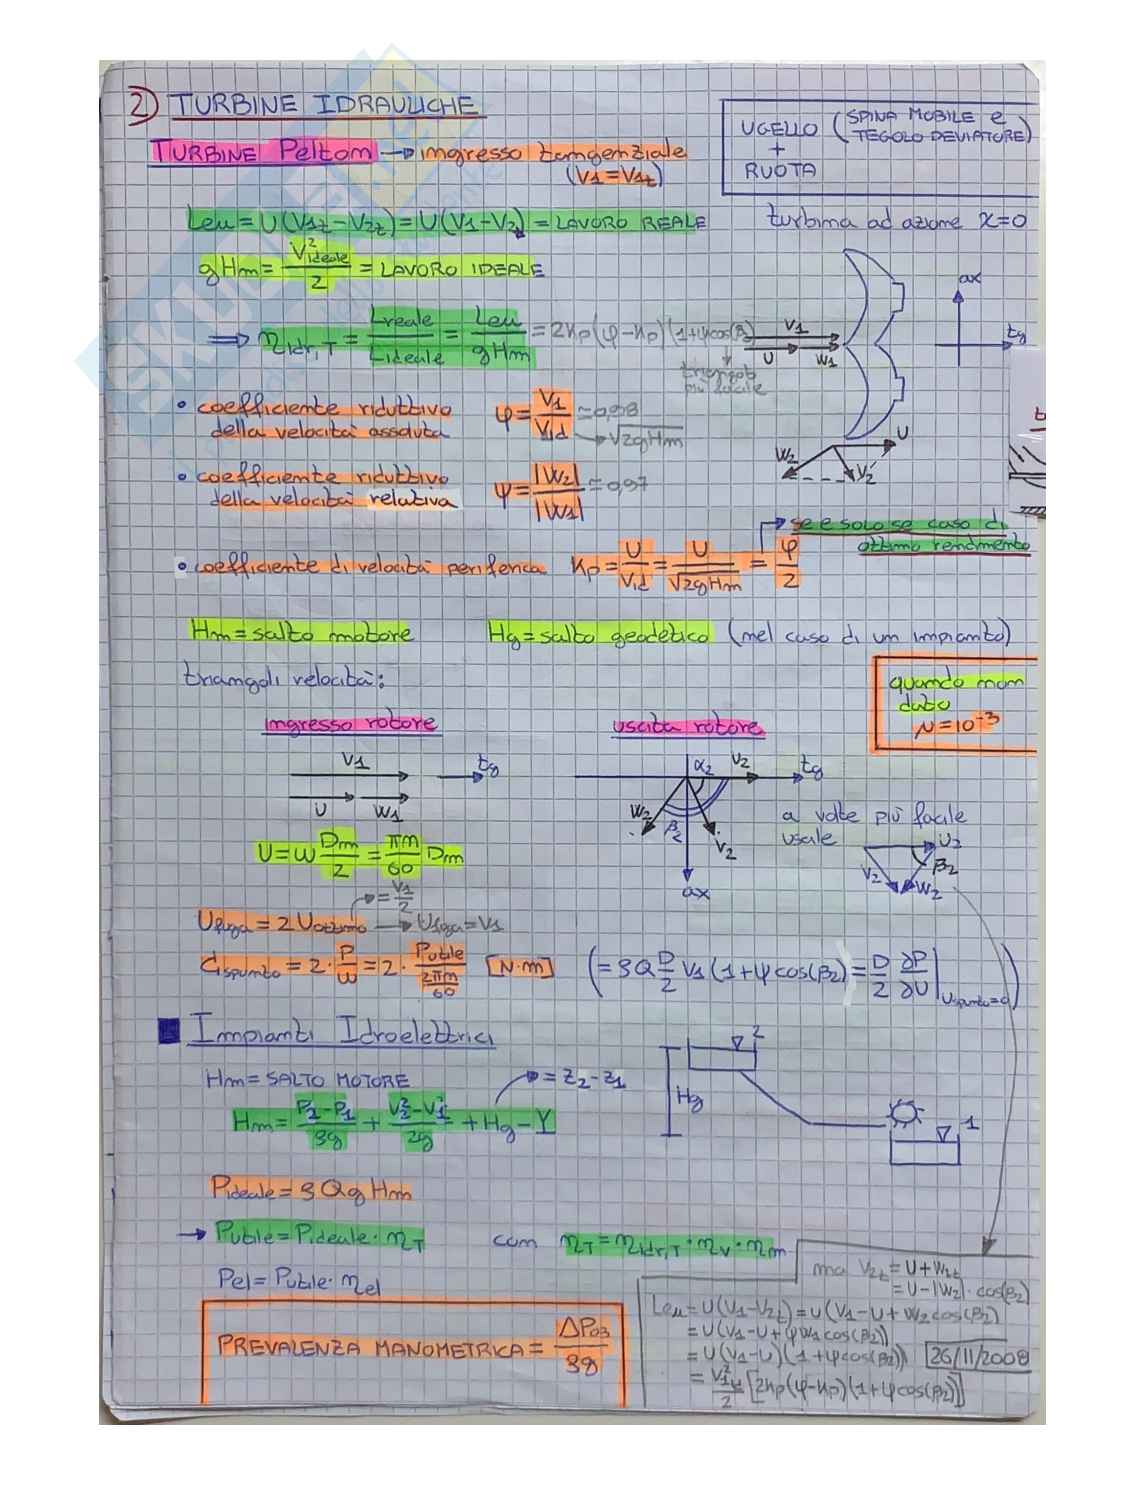 2) TURBINE IDRAULICHE
UGELLO (SPINA MOBILE e TEGOLO DEVIATORE)
+
RUOTA
TURBINE Pelton → ingresso tangenziale
(V1=V1t)
Leu = U(V1t-V2t) = U(V1-V2t) = LAVORO REALE
turbina ad azione χ=0
gHm = V²ideale/2 = LAVORO IDEALE
⇒ ηidr,T = Lreale/Lideale = Leu/gHm = 2Kp(φ-Kp)(1+ψcos(β2))
triangolo
più facile
V1
U W1
ax
tg
• coefficiente riduttivo
della velocità assoluta
φ = V1/Vid ≃ 0,98
→ √2gHm
W2 U
V2
• coefficiente riduttivo
della velocità relativa
ψ = |W2|/|W1| ≃ 0,97
→ se e solo se caso di
ottimo rendimento
• coefficiente di velocità periferica Kp = U/Vid = U/√2gHm = φ/2
Hm = salto motore Hg = salto geodetico (nel caso di un impianto)
triangoli velocità:
quando non
dato
N=10⁻³
ingresso rotore uscita rotore
V1 tg
U W1
α2 U2 tg
W2 β2 V2
ax
a volte più facile
usale
U2
V2 β2 W2
U = ω Dm/2 = πn/60 Dm
= V1/2
Ufuga = 2 Uottimo → Ufuga = V1
Cspunto = 2·P/ω = 2·Putile/(2πn/60) [N·m] (= ρQ D/2 V1(1+ψcos(β2)) = D/2 ∂P/∂U|Uspunto=0)
Impianti Idroelettrici
Hm = SALTO MOTORE → = Z2-Z1
Hm = P2-P1/ρg + V2²-V1²/2g + Hg - Y
2
Hg
1
Pideale = ρQgHm
→ Putile = Pideale·ηT con ηT = ηidr,T·ηv·ηm
Pel = Putile·ηel
PREVALENZA MANOMETRICA = ΔP03/ρg
ma V2t = U+W2t
= U-|W2|·cos(β2)
Leu = U(V1-V2t) = U(V1-U+W2cos(β2))
= U(V1-U+ψW1cos(β2))
= U(V1-U)(1+ψcos(β2))
26/11/2008
= V1²id/2 [2Kp(φ-Kp)(1+ψcos(β2))]